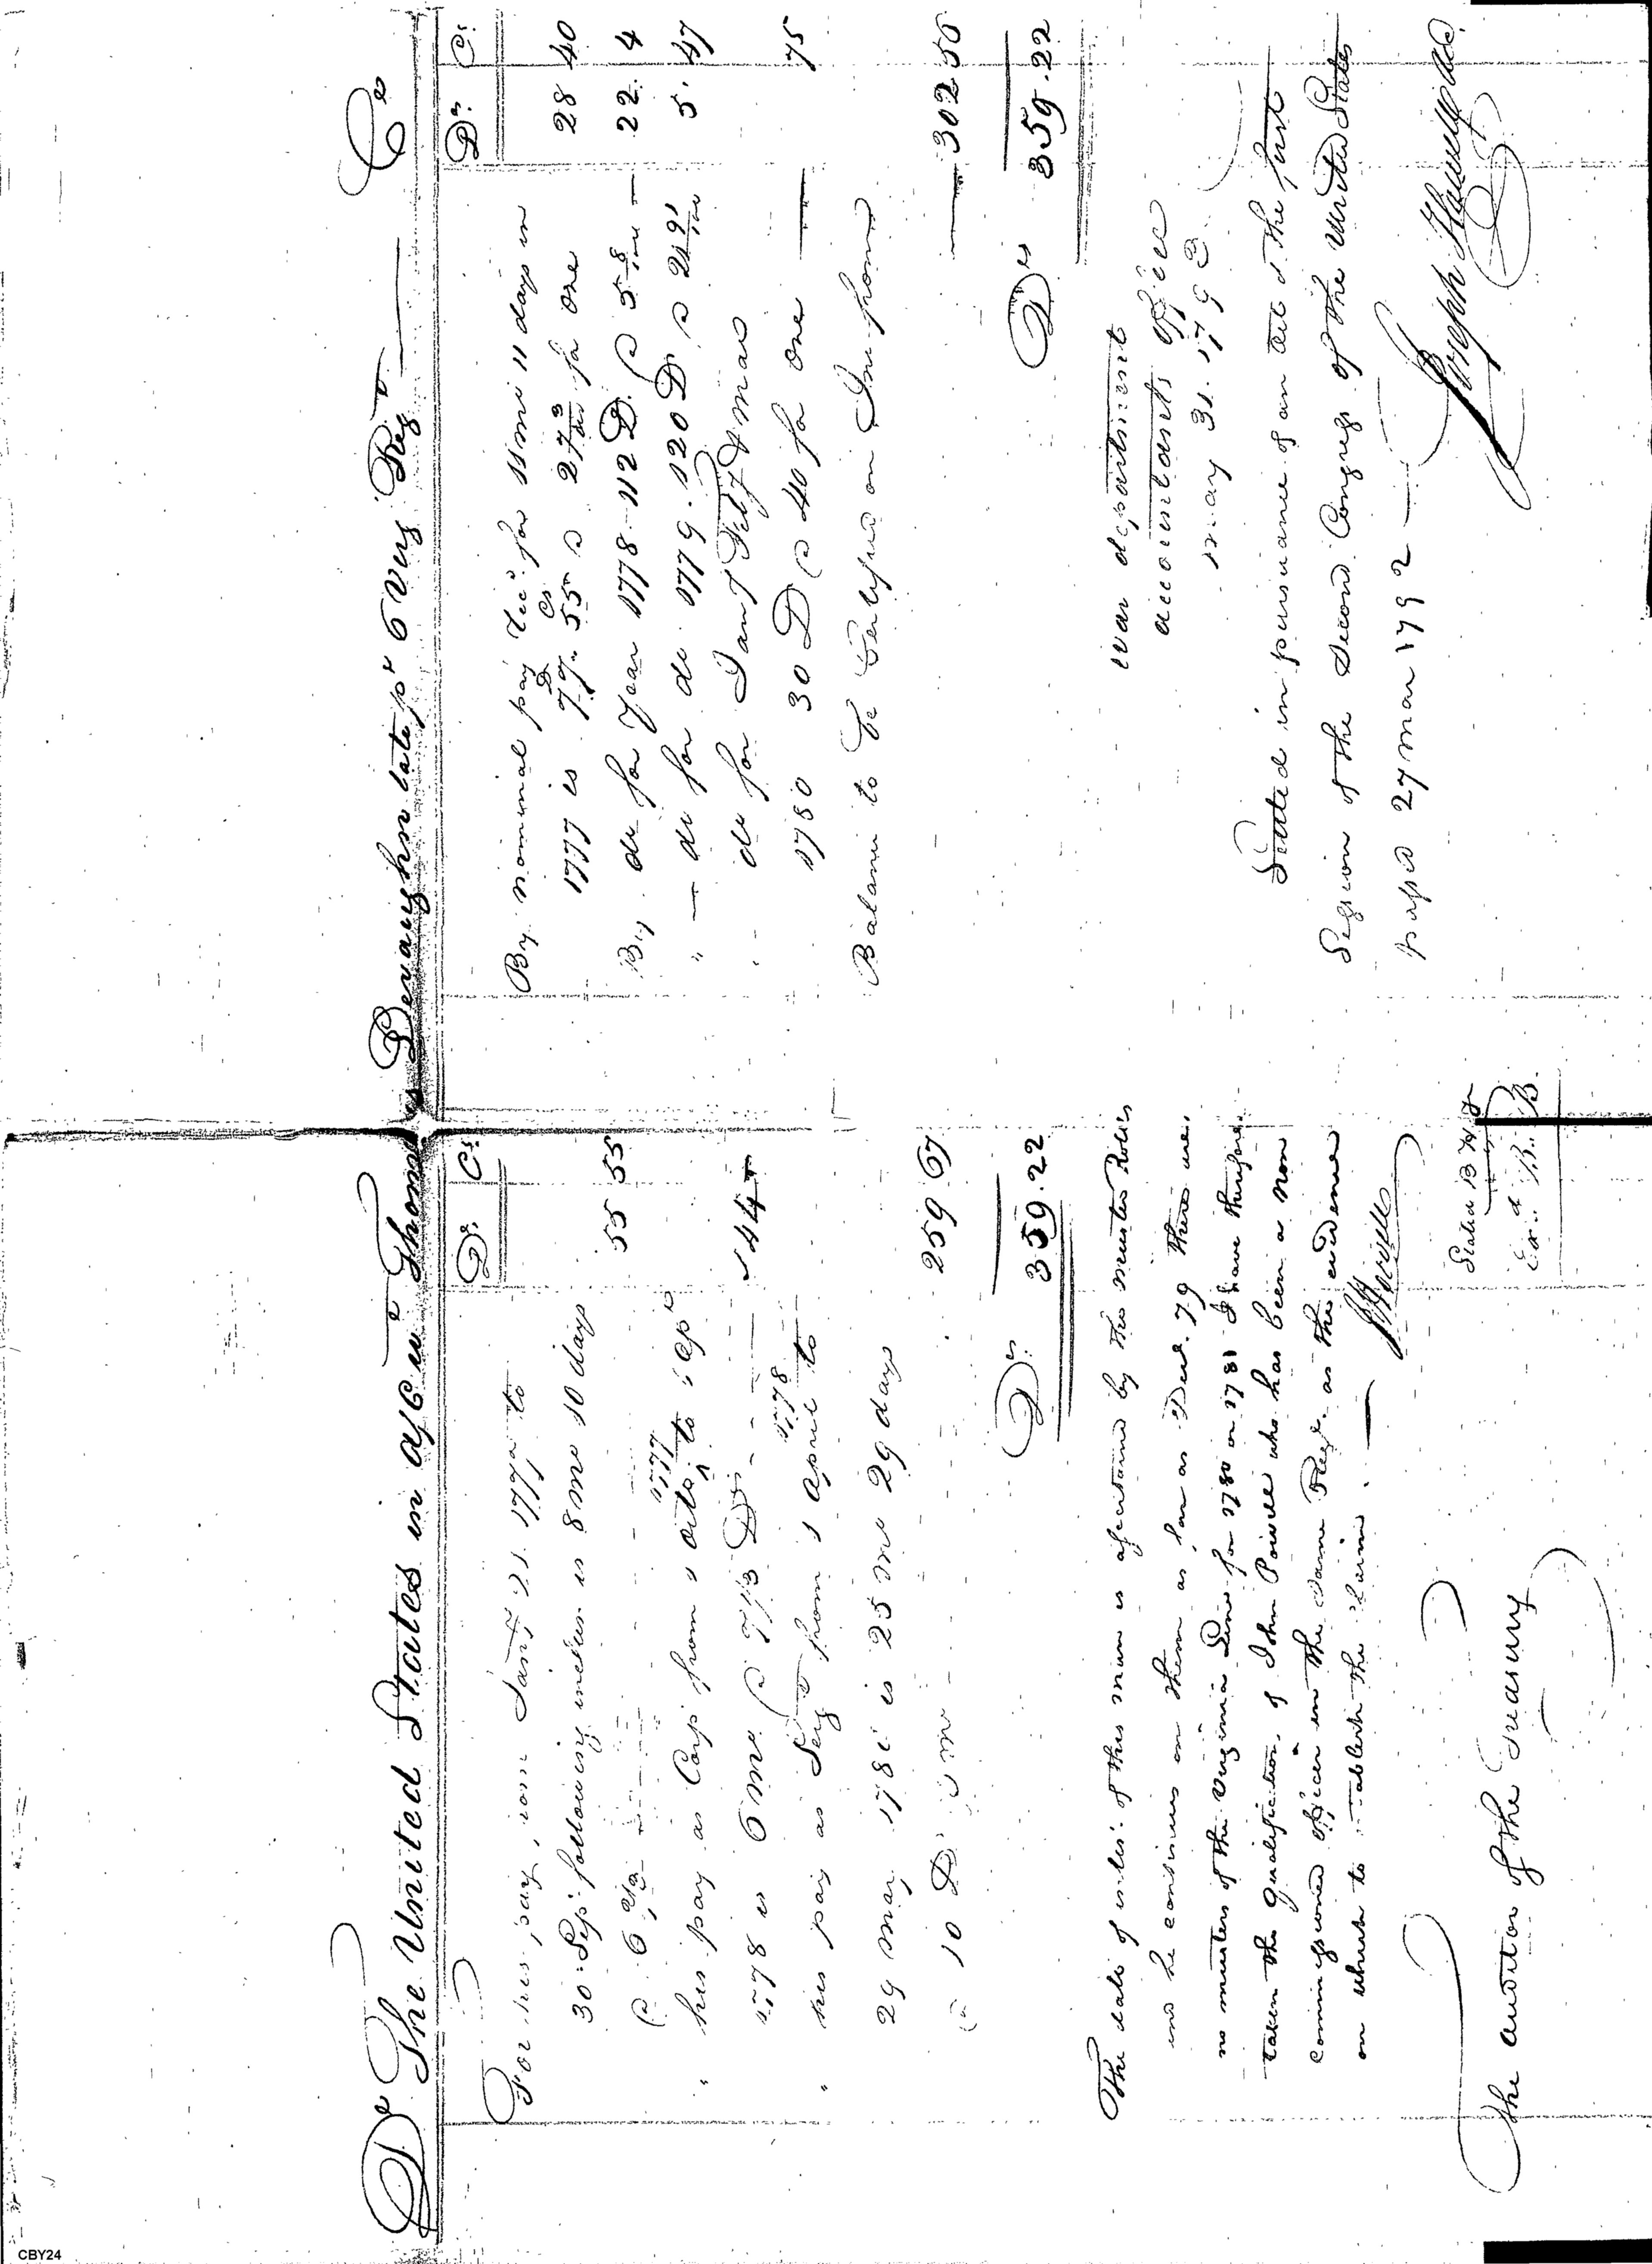 Dr The United States in a/c wt Thomas Devaughn late pr 6 Virg Regt Cr
Drs Cs
For his pay from Jany 21. 1777 to
30 Sepr following inclus is 8 mo 10 days
@ 6 2/3 Drs 55 55
" his pay as Corpl from 1 octo 1777 to 1 Apl
1778 is 6 mo @ 7 1/3 Drs 44
" his pay as Sergt from 1 April 1778 to
29 may 1780 is 25 mo 29 days
@ 10 Drs pr mo 259 67
Drs 359.22
The date of inlist of this man is ascertained by the muster Rolls
and he continues on them as far as Decr 79 there are
no musters of the Virginia Line for 1780 or 1781 I have therefore
taken the qualification of John Powell who has been a non
commissioned officer in the same Regt as the evidence
on which to establish the claim.
J Howell
Stated B H J
Exd B.. B.
The auditor of the Treasury
Drs Cs
By nominal pay recd for 11 mo 11 days in
1777 is 77 Ds 55 Cs a 2 73/100 for one 28 40
By do for year 1778 112 D. @ 5 8/100 22. 4
" do for do 1779. 120 D a 21 91/100 5. 47
" do for Jany Feby & mar
1780 30 D @ 40 for one 75
Balance to be certified on Int from
302 55
Drs 359.22
War department
accountants office
may 31. 1793
Settled in pursuance of an act of the first
Session of the Second Congress of the United States
passd 27 mar 1792
Joseph Howell Acct
CBY24